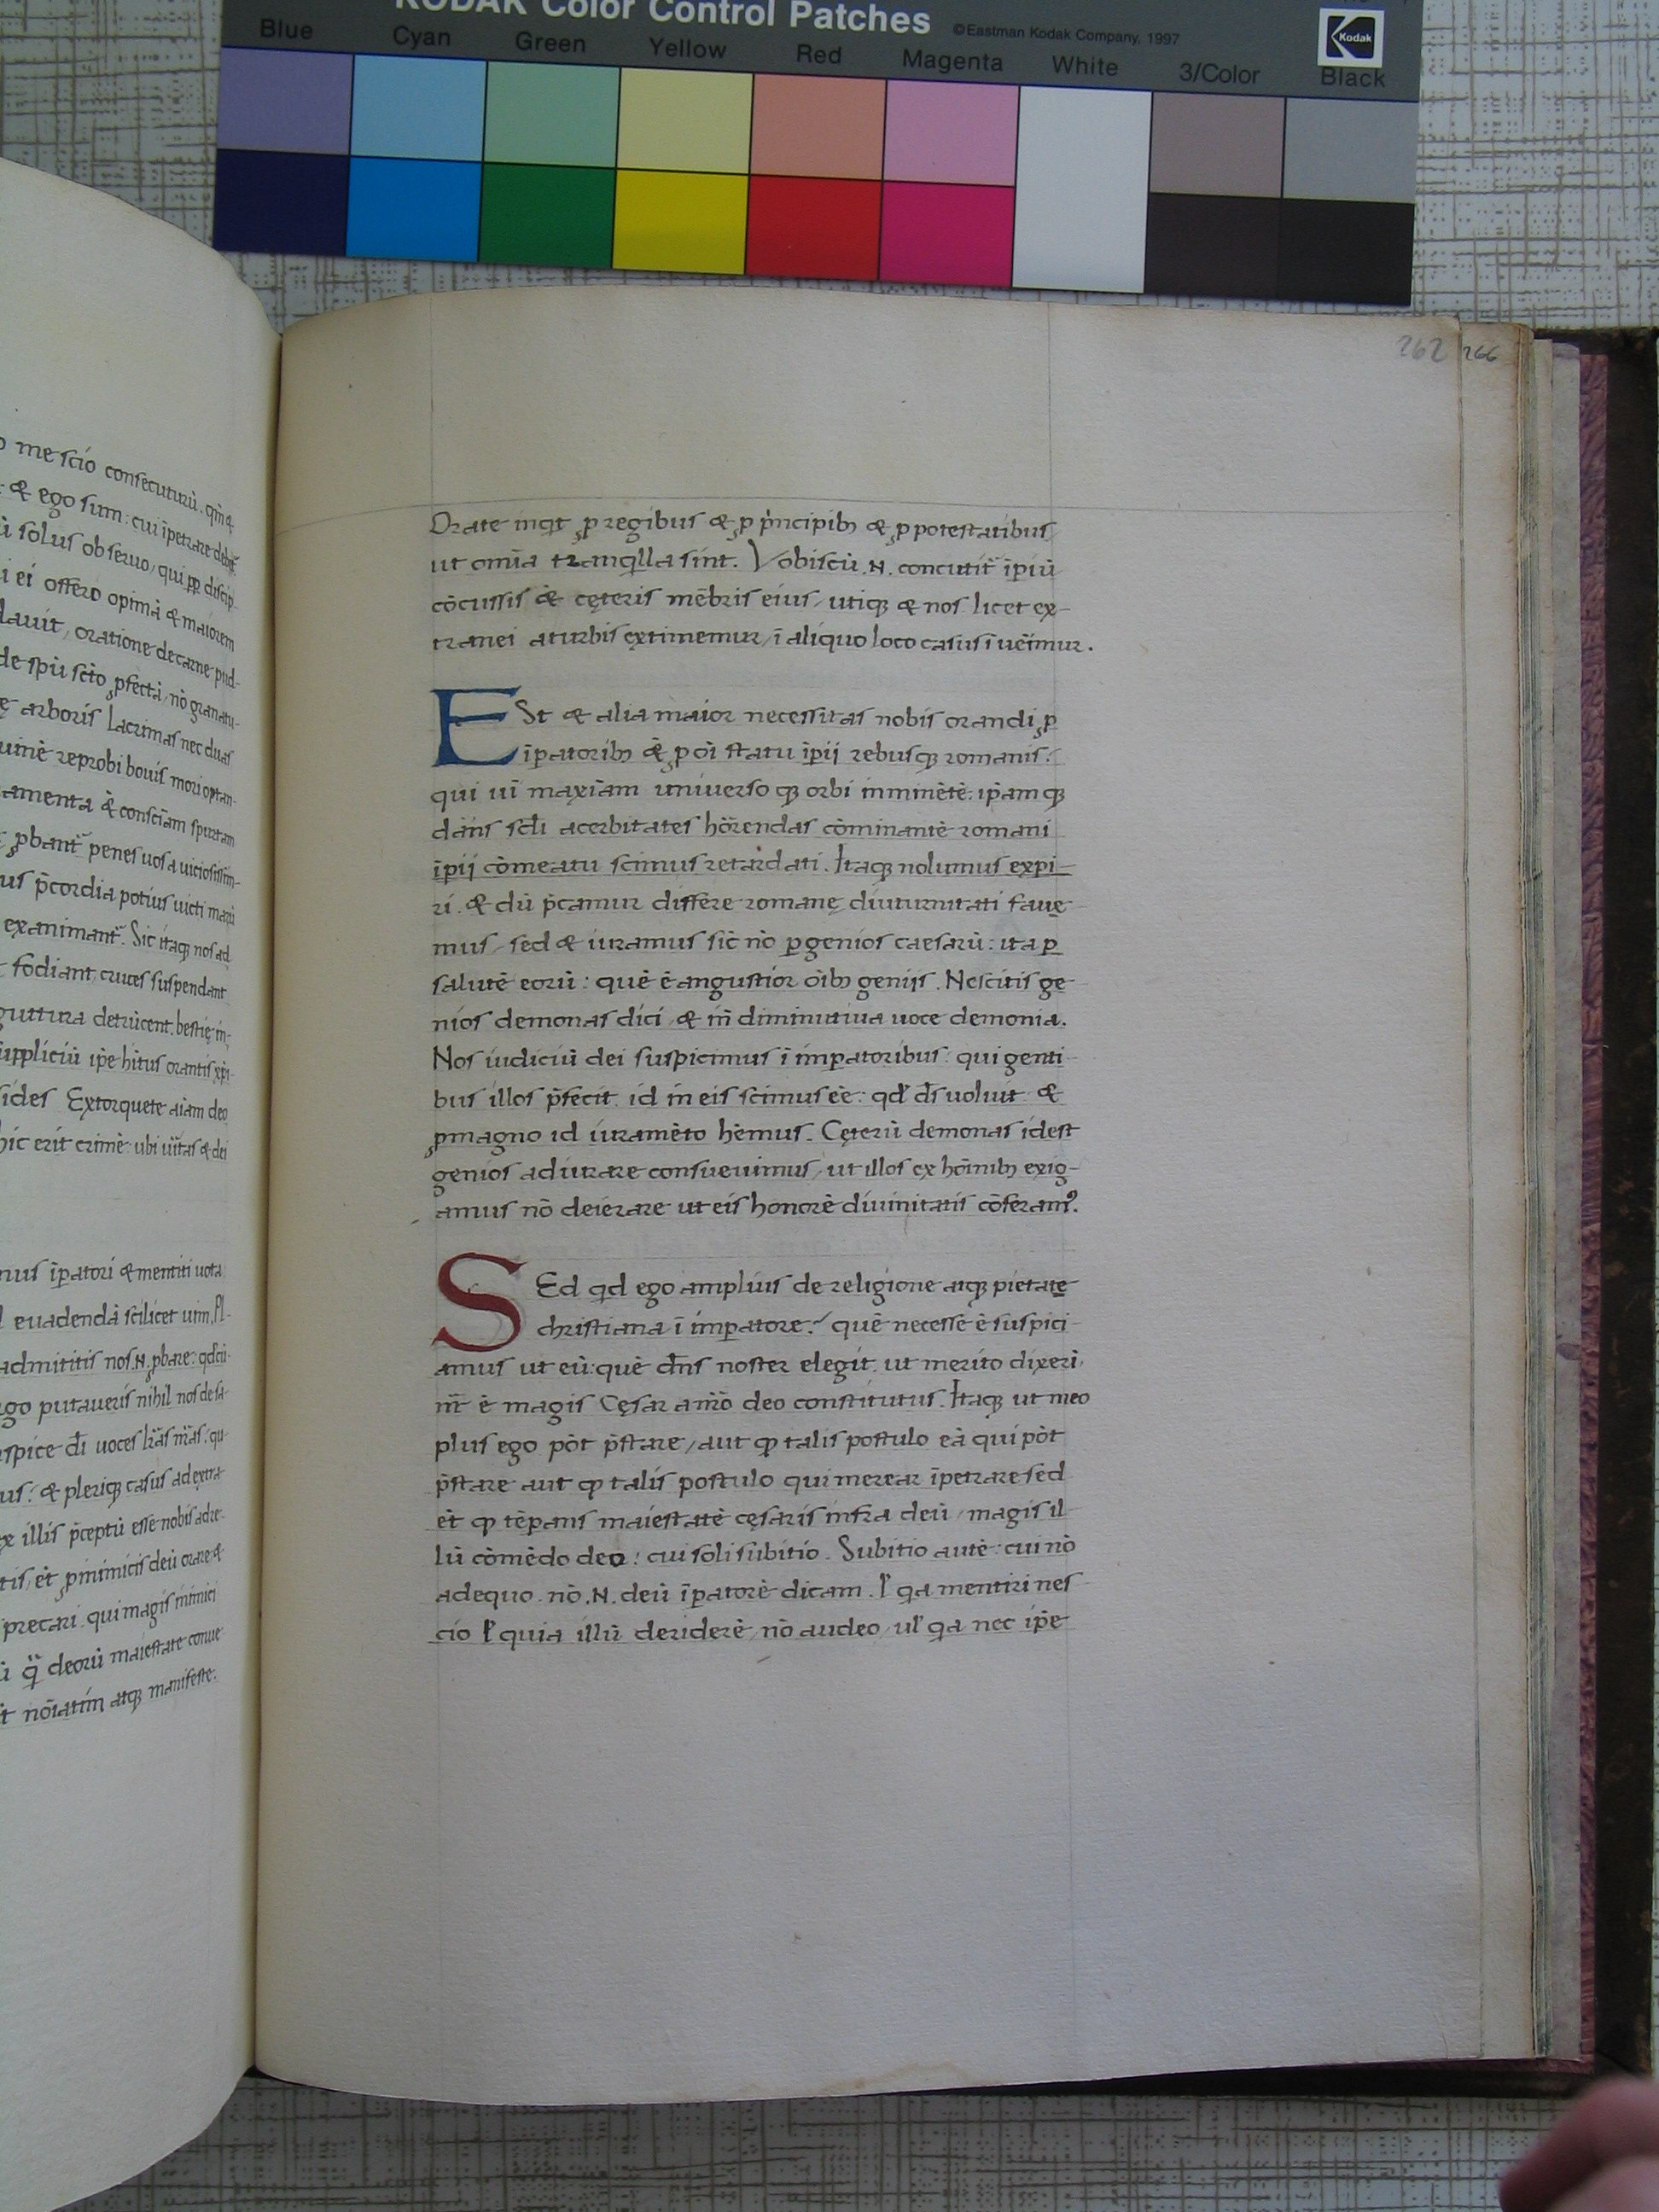 KODAK Color Control Patches
©Eastman Kodak Company, 1997
Kodak
Blue Cyan Green Yellow Red Magenta White 3/Color Black
262 266
o me scio consecuturũ. qm̃ &
: & ego sum: cui ĩpetrare debet̃.
ũ solus obseruo, qui ꝓp discip
i ei offero opimã & maiorem
dauit, oratione de carne pud-
de spũ scõ ꝓfectã, nõ grana tu-
ę arboris lacrimas nec duas
uinẽ reprobi bouis mori optan-
amenta & consciam spurcam
ꝓbant̃ penes uos a uiciosissim-
us p̃cordia potius uicti marũ
examinant̃. Sic itaqꝫ nos ad
fodiant, cruces suspendant
guttura detrũcent, bestię in-
uppliciũ ip̃e hitus orantis xp̃i
sides Extorquete aĩam deo
hic erit crimẽ: ubi uĩtas & dei
nus ĩꝑatori & mentiti uota
euadendã scilicet uim, Fl-
admititis nos .N. ꝓbare: qd cũ
go putaueris nihil nos de sa-
spice dĩ uoces lr̃as nr̃as: qu
us: & pleriqꝫ casus ad extra
ex illis p̃ceptũ esse nobis ad re-
tis, et̃ ꝓ inimicis deũ orare &
precari. qui magis inimici
ũ q̃ deorũ maiestate conue
t nõiatim atqꝫ manifeste.
Orate inqt ꝓ regibus & ꝓ p̃ncipibꝫ & ꝓ potestatibus
ut omĩa tranqlla sint. Vobiscũ .N. concutit̃ ĩꝑiũ
cõcussis & cęteris mẽbris eius, utiqꝫ & nos licet ex-
tranei a turbis extimemur, ĩ aliquo loco casus ĩueĩmur.
ESt & alia maior necessitas nobis orandi ꝓ
ĩꝑatoribꝫ & ꝓ oĩ statu ĩꝑii rebusqꝫ romanis:
qui uĩ maxĩam uniuerso qꝫ orbi imminẽtẽ. ip̃am qꝫ
dãns scl̃i acerbitates hõrendas cõminantẽ romani
ĩꝑii cõmeatu scimus retardati. Itaqꝫ nolumus expi-
ri. & dũ p̃camur differe romanę diuturnitati faue
mus, sed & iuramus sic nõ ꝑ genios caesarũ: ita ꝑ
salutẽ eorũ: quẽ ẽ angustior oĩbꝫ geniis. Nescitis ge-
nios demonas dici, & iñ diminutiua uoce demonia.
Nos iudiciũ dei suspicimus ĩ imꝑatoribus: qui genti-
bus illos p̃fecit. id in eis scimus eẽ: qd̃ ds̃ uoluit. &
ꝓ magno id iuramẽto hẽmus. Cęterũ demonas idest
genios adiurare consueuimus, ut illos ex hoĩnibꝫ exig-
amus nõ deierare ut eis honorẽ diuinitatis cõferamꝰ.
SEd qd ego amplius de religione atqꝫ pietate
christiana ĩ imꝑatore: quẽ necesse ẽ suspici-
amus ut eũ: quẽ dñs noster elegit. ut merito dixeri,
nr̃ ẽ magis Cęsar a nr̃o deo constitutus. Itaqꝫ ut meo
plus ego põt p̃stare, aut ꝙ talis postulo eã qui põt
p̃stare aut ꝙ talis postulo qui merear ĩpetrare sed
et̃ ꝙ tẽꝑans maiestatẽ cęsaris infra deũ, magis il-
lũ cõmẽdo deo: cui soli subitio. Subitio autẽ: cui nõ
adequo. nõ .N. deũ ĩꝑatorẽ dicam. ł qa mentiri nes-
cio ł quia illũ deriderẽ, nõ audeo, ul̃ qa nec ip̃e